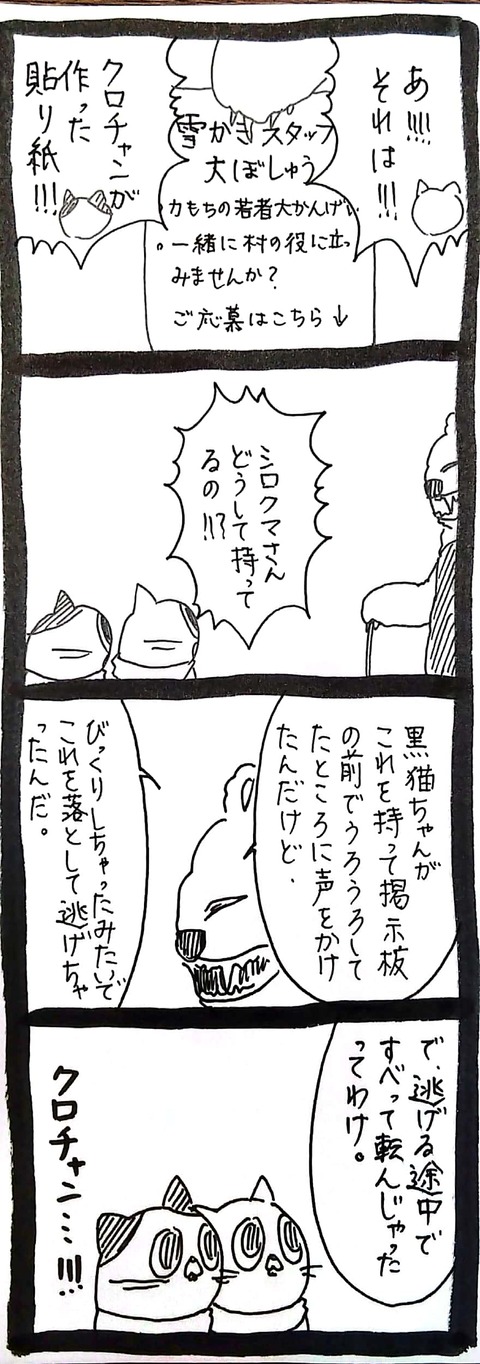 あ!!!!
それは!!!
雪かきスタッフ
大ぼしゅう
力もちの若者大かんげい
。一緒に村の役に立っ
みませんか？
ご応募はこちら↓
クロチャンが
作った
貼り紙!!!
シロクマさん
どうして持って
るの!!?
黒猫ちゃんが
これを持って掲示板
の前でうろうろして
たところに声をかけ
たんだけど、
びっくりしちゃったみたいで
これを落として逃げちゃ
ったんだ。
で、逃げる途中で
すべって転んじゃった
ってわけ。
クロチャン…!!!